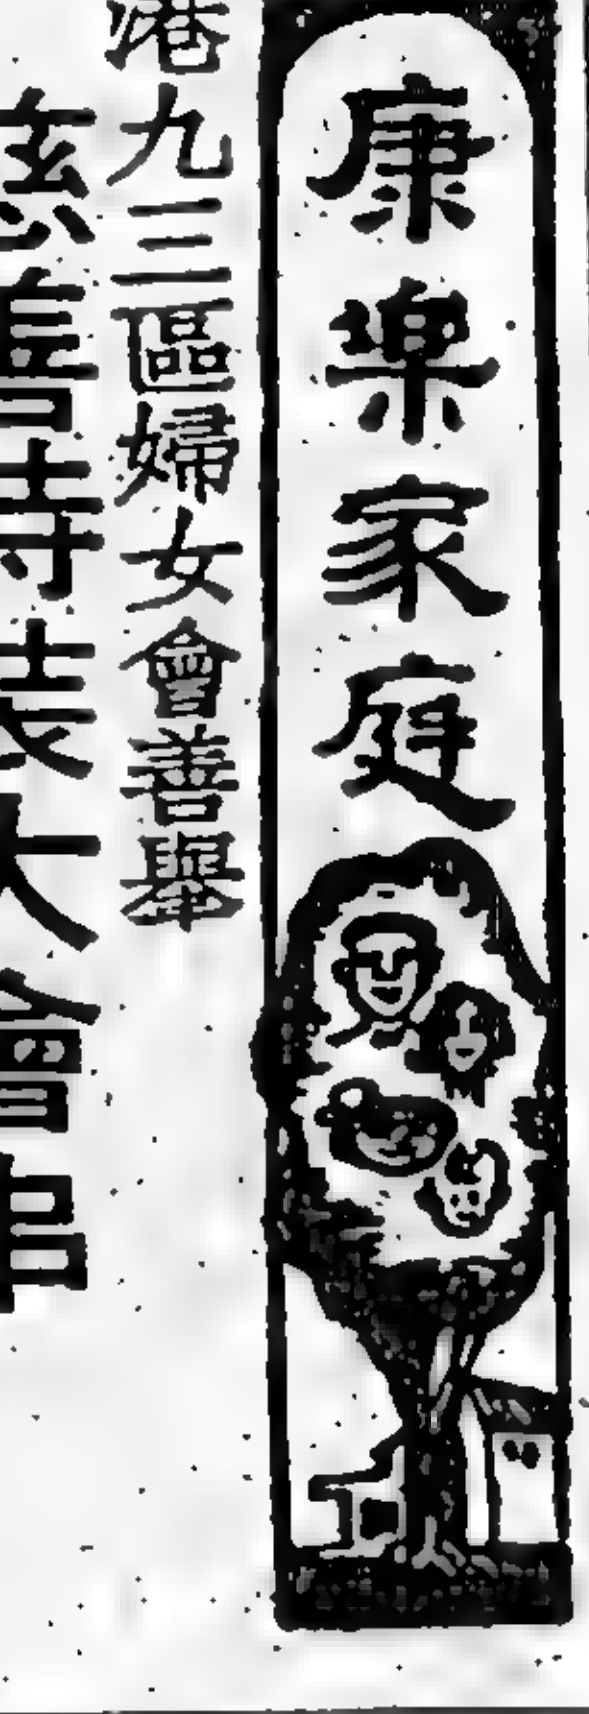 康楽家庭
港九三區婦女會善舉
慈善時裝大會串